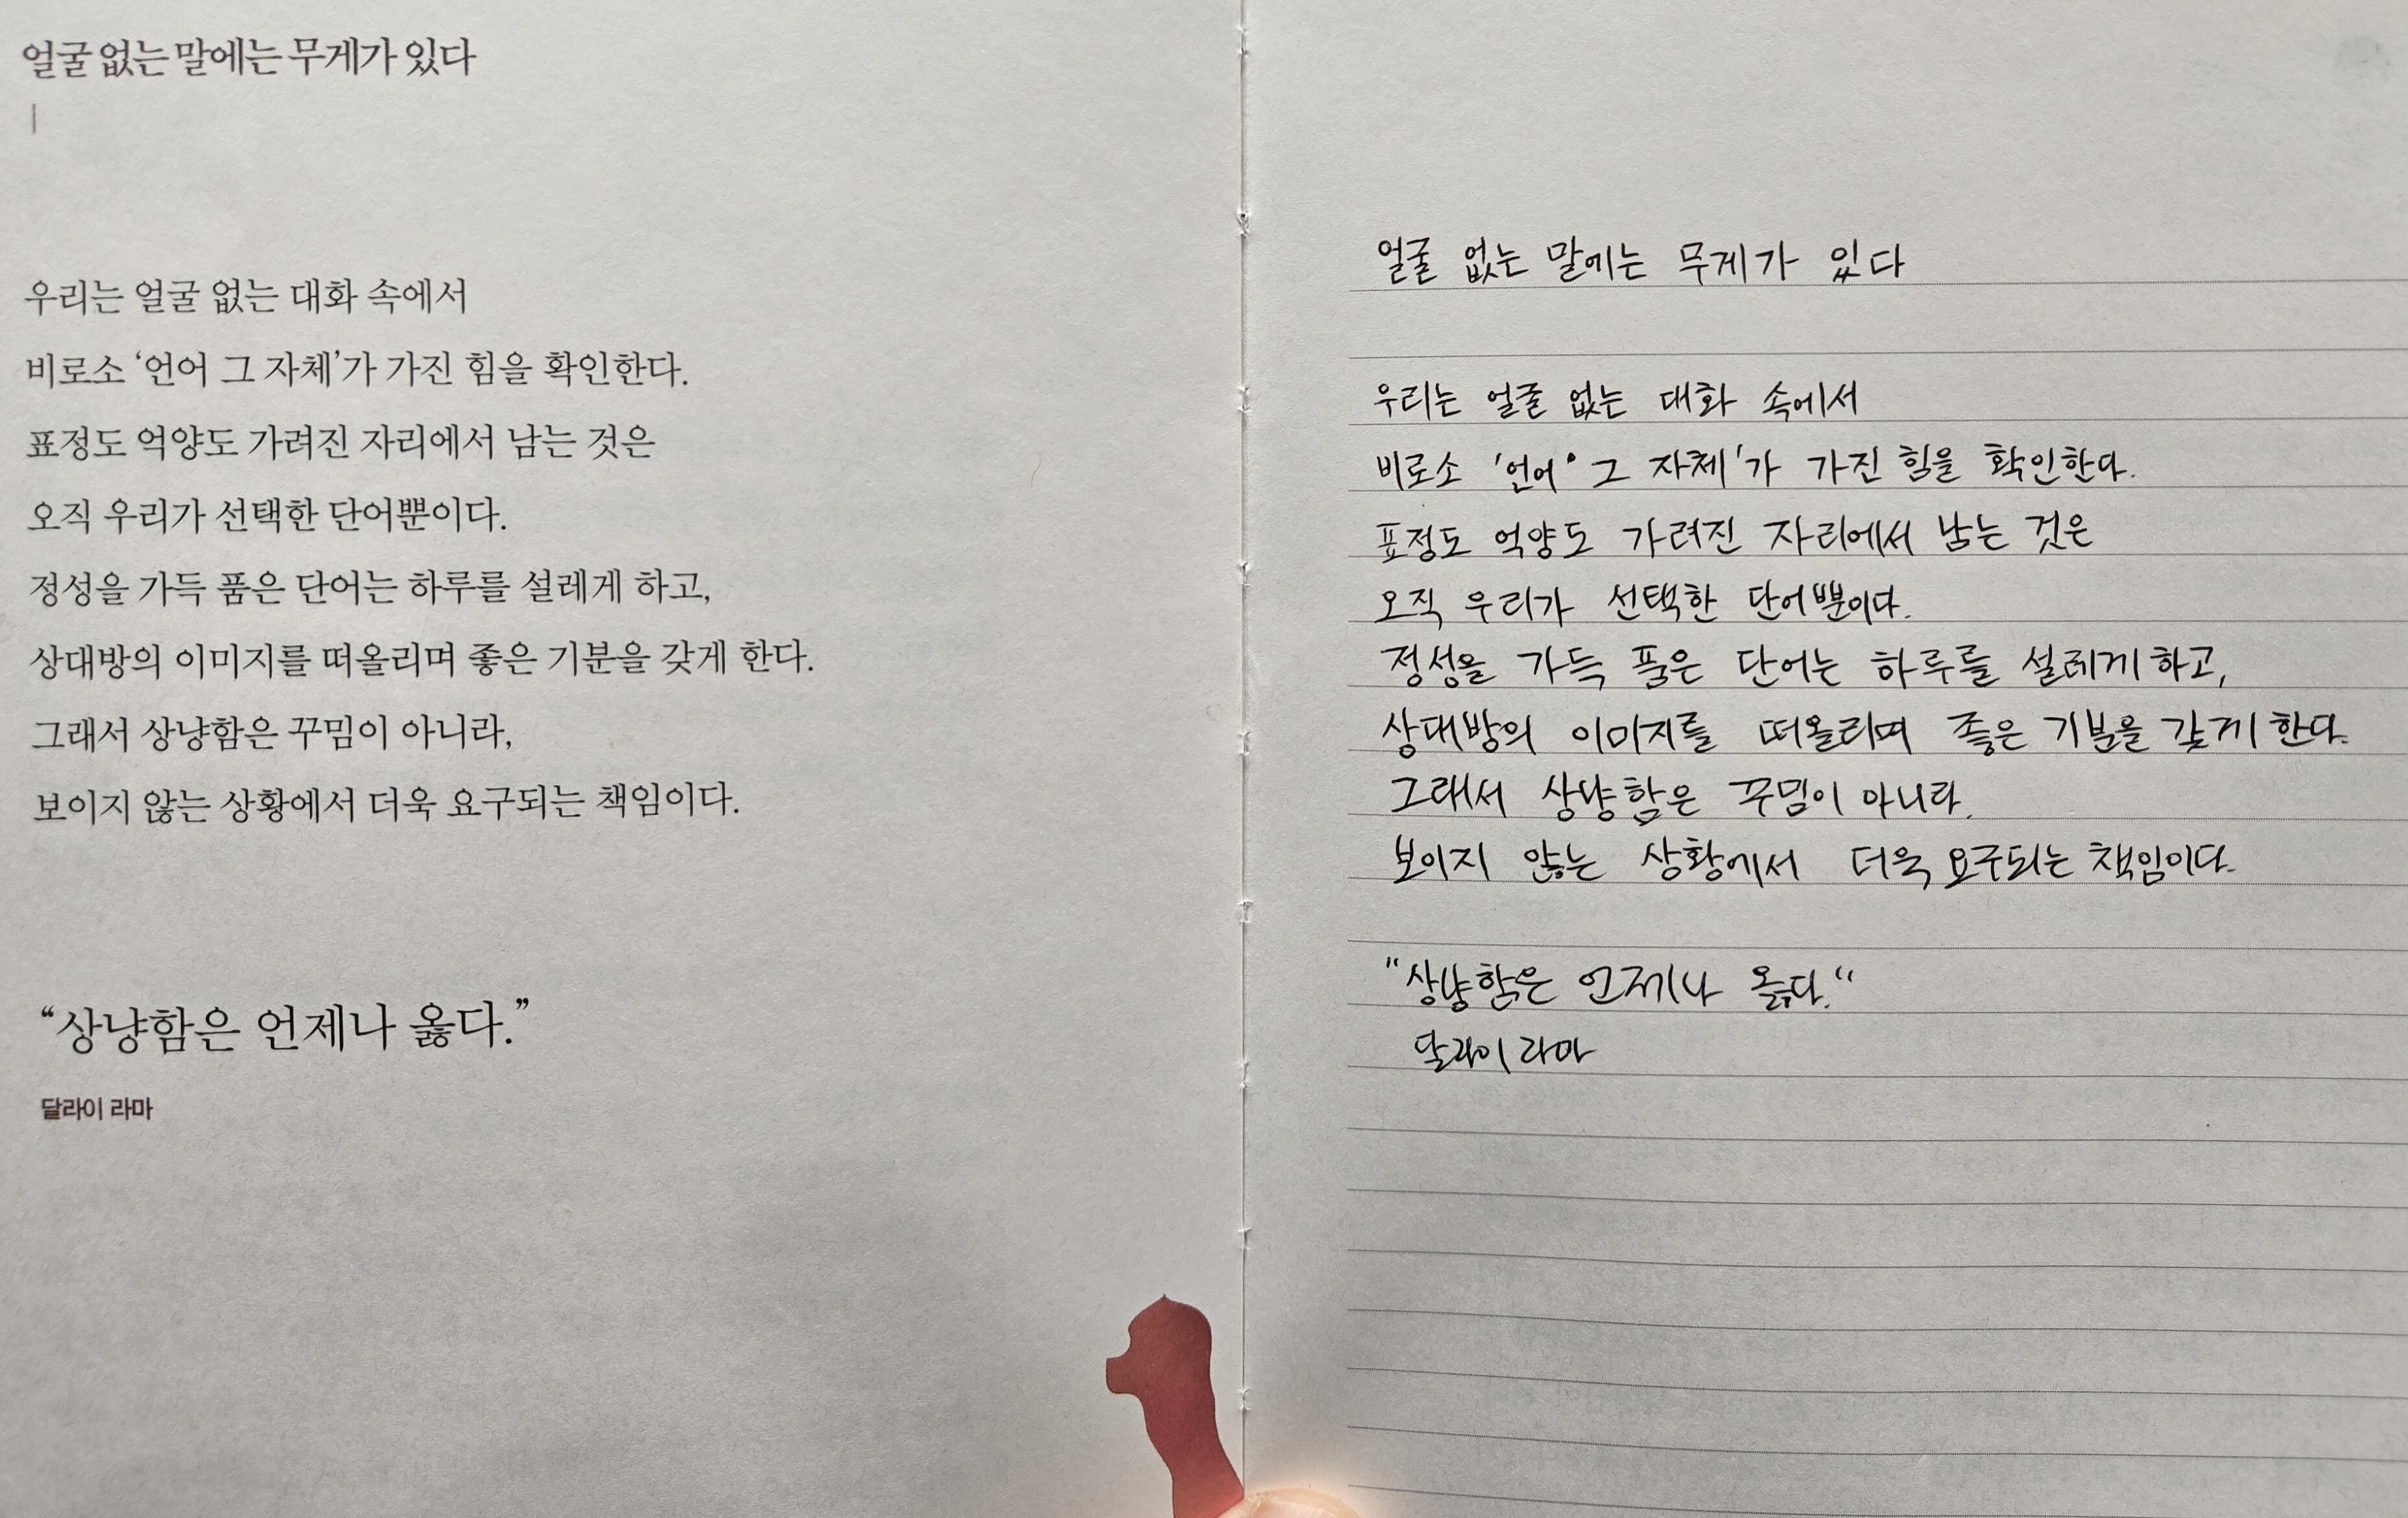 얼굴 없는 말에는 무게가 있다
우리는 얼굴 없는 대화 속에서
비로소 ‘언어 그 자체’가 가진 힘을 확인한다.
표정도 억양도 가려진 자리에서 남는 것은
오직 우리가 선택한 단어뿐이다.
정성을 가득 품은 단어는 하루를 설레게 하고,
상대방의 이미지를 떠올리며 좋은 기분을 갖게 한다.
그래서 상냥함은 꾸밈이 아니라,
보이지 않는 상황에서 더욱 요구되는 책임이다.
“상냥함은 언제나 옳다.”
달라이 라마
얼굴 없는 말에는 무게가 있다
우리는 얼굴 없는 대화 속에서
비로소 '언어• 그 자체'가 가진 힘을 확인한다.
표정도 억양도 가려진 자리에서 남는 것은
오직 우리가 선택한 단어뿐이다.
정성을 가득 품은 단어는 하루를 설레게 하고,
상대방의 이미지를 떠올리며 좋은 기분을 갖게 한다.
그래서 상냥함은 꾸밈이 아니라,
보이지 않는 상황에서 더욱 요구되는 책임이다.
"상냥함은 언제나 옳다."
달라이 라마